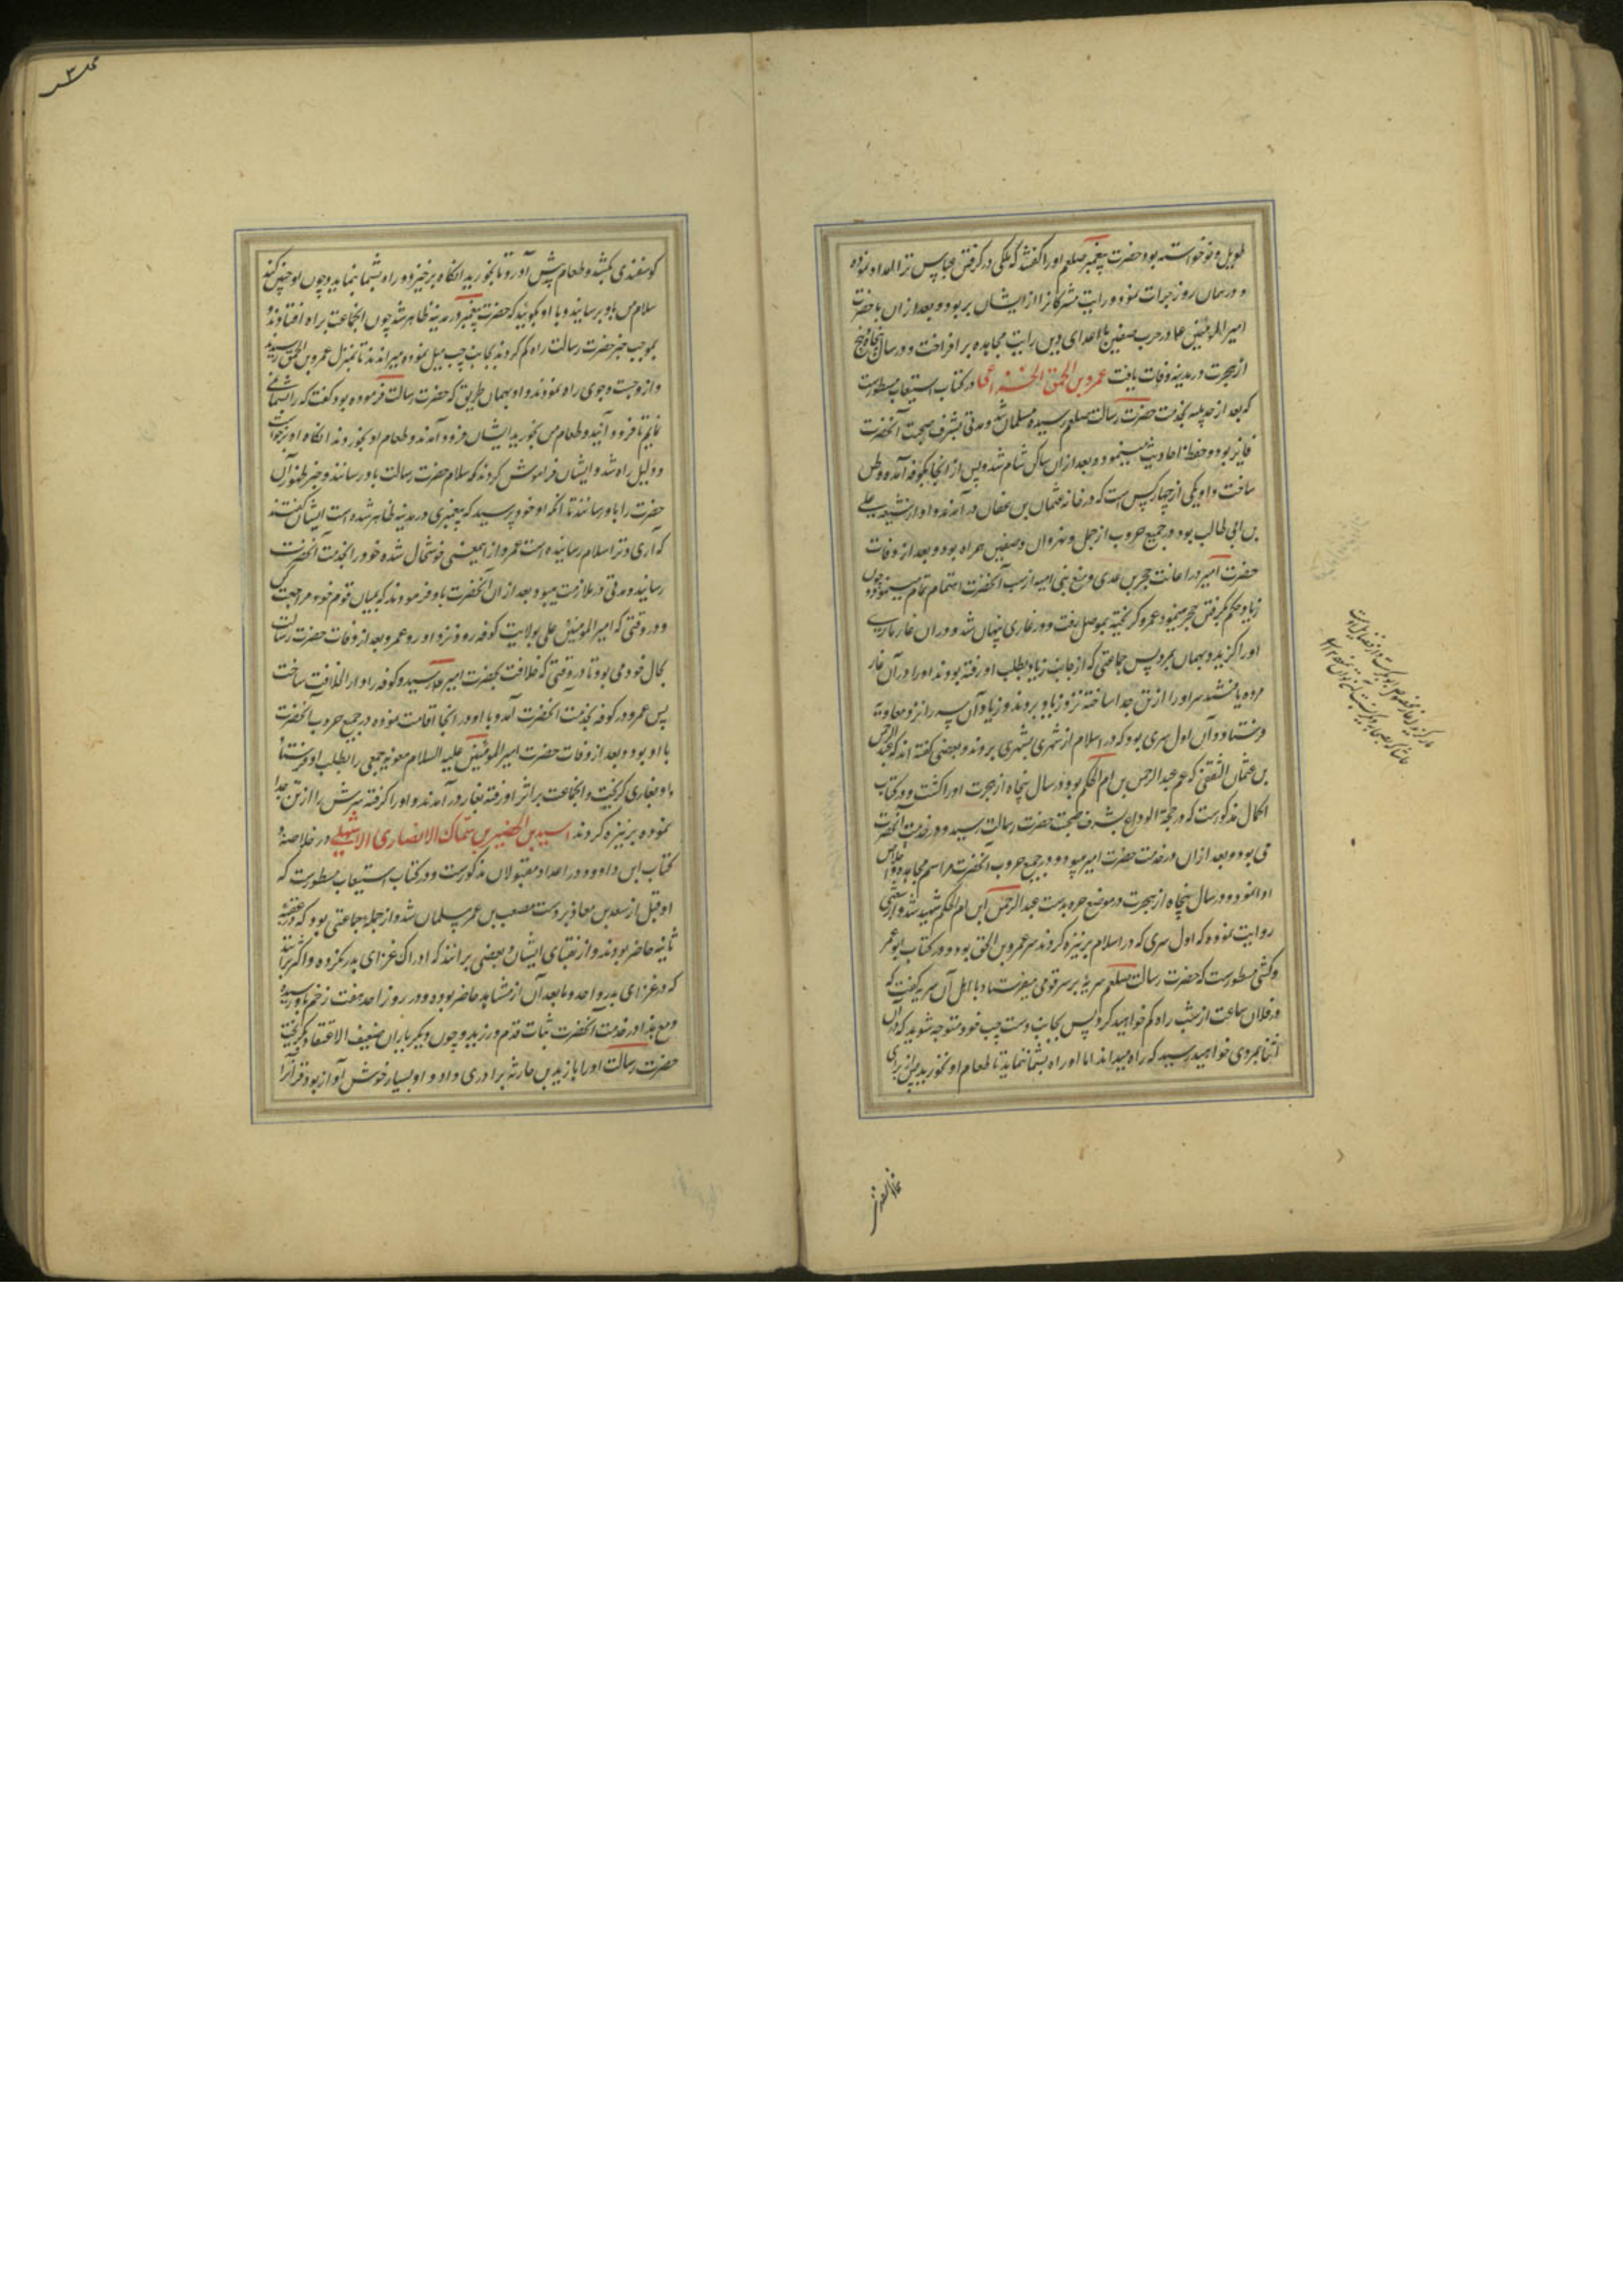 طویل و نوخواسته بود حضرت پیغمبر صلعم او را گفتند که ملکی در گرفتن عباس ترا امداد نموده
و در همان روز جرات نمود و رایت مشرکانرا از ایشان بربود و بعد از ان با حضرت
امیر المومنین علی در حرب صفین با اعدای دین رایت مجاهده برافراخت و در سال پنجاه و پنج
از هجرت در مدینه وفات یافت عمرو بن الحمق الخزاعی در کتاب استیعاب مسطورست
که بعد از حدیبیه بخدمت حضرت رسالت صلعم رسیده مسلمان شد و مدتی بشرف صحبت آنحضرت
فایز بود و حفظ احادیث مینمود و بعد از ان ساکن شام شد و پس از انجا بکوفه آمده وطن
ساخت و او یکی از چهار کس است که در خانه عثمان بن عفان در آمدند و او از شیعه علی
بن ابی طالب بود و در جمیع حروب از جمل و نهروان و صفین همراه بود و بعد از وفات
حضرت امیر در اعانت حجر بن عدی و منع بنی امیه از سب آنحضرت اهتمام تمام مینمود و چون
زیاد حکم بگرفتن حجر مینمود عمرو گریخته بموصل رفت و در غاری پنهان شد و در ان غار ماری
او را گزید و بهمان بمرد پس جماعتی که از جانب زیاد بطلب او رفته بودند او را در آن غار
مرده یافتند سر او را از تن جدا ساخته نزد زیاد بردند و زیاد آن سر را نزد معاویه
فرستاد و آن اول سری بود که در اسلام از شهری بشهری بردند و بعضی گفته اند که عبد الرحمن
بن عثمان الثقفی که عم عبد الرحمن بن ام الحکم بود در سال پنجاه از هجرت او را کشت و در کتاب
اکمال مذکورست که در حجة الوداع بشرف صحبت حضرت رسالت رسید و در خدمت آنحضرت
می بود و بعد از ان در خدمت حضرت امیر میبود و در جمیع حروب آنحضرت مراسم مجاهده و اخلاص
ادا نمود و در سال پنجاه از هجرت در موضع حره بدست عبد الرحمن ابن ام الحکم شهید شد و از شعبی
روایت نموده که اول سری که در اسلام بر نیزه کردند سر عمرو بن الحمق بود و در کتاب ابو عمر
و کشی مسطورست که حضرت رسالت صلعم سریهٔ بر سر قومی میفرستاد با اهل آن سریه گفت که
در فلان ساعت از شب راه گم خواهید کرد پس بجانب دست چپ خود متوجه شوید که در آن
اثنا بمردی خواهید رسید که راه میداند اما او راه بشما ننماید تا طعام او نخورید پس از برای
گوسفندی بکشد و طعام پیش آورد تا بخورید آنگاه برخیزد و راه بشما بنماید و چون او چنین کند
سلام من باو برسانید و با او بگوئید که حضرت پیغمبر در مدینه ظاهر شد چون انجماعت براه افتادند و
بموجب خبر حضرت رسالت راه گم کردند بجانب چپ میل نموده میراندند تا بمنزل عمرو بن الحمق رسیدند
و ازو جست و جوی راه نمودند و او بهمان طریق که حضرت رسالت فرموده بود گفت که راه بشما نمی
نمایم تا فرود آئید و طعام من بخورید ایشان فرود آمدند و طعام او بخوردند آنگاه او برخواست
و دلیل راه شد و ایشان فراموش کردند که سلام حضرت رسالت باو رسانند و خبر ظهور آن
حضرت را باو رسانند تا آنکه او خود پرسید که پیغمبری در مدینه ظاهر شده است ایشان گفتند
که آری و ترا سلام رسانیده است عمرو از این معنی خوشحال شده خود را بخدمت آنحضرت
رسانید و مدتی در ملازمت میبود بعد از ان آنحضرت باو فرمودند که بمیان قوم خود مراجعت کن
و در وقتی که امیر المومنین علی بولایت کوفه رود نزد او رو عمرو بعد از وفات حضرت رسالت
بحال خود می بود تا در وقتی که خلافت بحضرت امیر علی رسید و کوفه را دار الخلافت ساخت
پس عمرو در کوفه بخدمت آنحضرت آمد و با او در انجا اقامت نموده در جمیع حروب آنحضرت
با او بود و بعد از وفات حضرت امیر المومنین علیه السلام معویه جمعی را بطلب او فرستاد
و او بغاری گریخت و انجماعت بر اثر او رفته بغار در آمدند و او را گرفته سرش را از تن جدا
نموده بر نیزه کردند اسید بن الحضیر بن سماک الانصاری الاشهلی در خلاصه و
کتاب ابن داوود در اعداد مقبولان مذکورست و در کتاب استیعاب مسطورست که
او قبل از سعد بن معاذ بر دست مصعب بن عمیر مسلمان شد و از جمله جماعتی بود که در عقبه
ثانیه حاضر بودند و از نقبای ایشان و بعضی برانند که ادراک غزای بدر نکرده و اکثر برانند
که در غزای بدر و احد و ما بعد آن از مشاهد حاضر بوده و در روز احد هفت زخم باو رسیده
و مع هذا در خدمت آنحضرت ثبات قدم ورزید و چون دیگر یاران ضعیف الاعتقاد نگریخت
حضرت رسالت او را با زید بن حارثه برادری داد و او بسیار خوش آواز بود قرآنرا